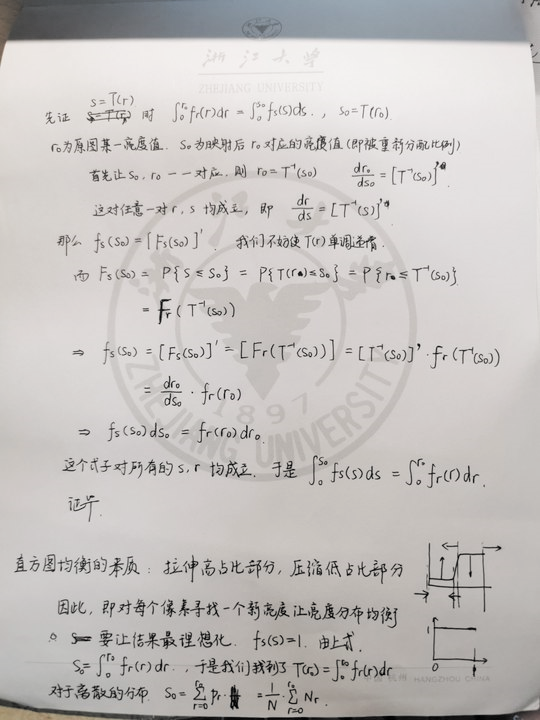 浙江大学
ZHEJIANG UNIVERSITY
s = T(r)
先证 时 ∫₀^{r₀} fr(r)dr = ∫₀^{s₀} fs(s)ds. , s₀ = T(r₀).
r₀为原图某一亮度值. s₀为映射后r₀对应的亮度值(即被重新分配比例)
首先让s₀, r₀一一对应. 则 r₀ = T⁻¹(s₀) dr₀/ds₀ = [T⁻¹(s₀)]'
这对任意一对r, s均成立, 即 dr/ds = [T⁻¹(s)]'
那么 fs(s₀) = [Fs(s₀)]'. 我们不妨使T(r)单调递增.
而 Fs(s₀) = P{s ≤ s₀} = P{T(r) ≤ s₀} = P{r₀ ≤ T⁻¹(s₀)}
= Fr(T⁻¹(s₀))
⇒ fs(s₀) = [Fs(s₀)]' = [Fr(T⁻¹(s₀))] = [T⁻¹(s₀)]' · fr(T⁻¹(s₀))
= dr₀/ds₀ · fr(r₀)
⇒ fs(s₀)ds₀ = fr(r₀)dr₀.
这个式子对所有的s, r均成立. 于是 ∫₀^{s₀} fs(s)ds = ∫₀^{r₀} fr(r)dr.
证毕
直方图均衡的本质: 拉伸高占比部分, 压缩低占比部分
因此, 即对每个像素寻找一个新亮度让亮度分布均衡
要让结果最理想化. fs(s)=1. 由上式.
1
0
s₀ = ∫₀^{r₀} fr(r)dr. , 于是我们找到了T(r₀) = ∫₀^{r₀} fr(r)dr
对于离散的分布. s₀ = Σ_{r=0}^{r₀} pr · = 1/N Σ_{r=0}^{r₀} Nr.
中国 杭州 HANGZHOU CHINA
1897
ZHEJIANG UNIVERSITY